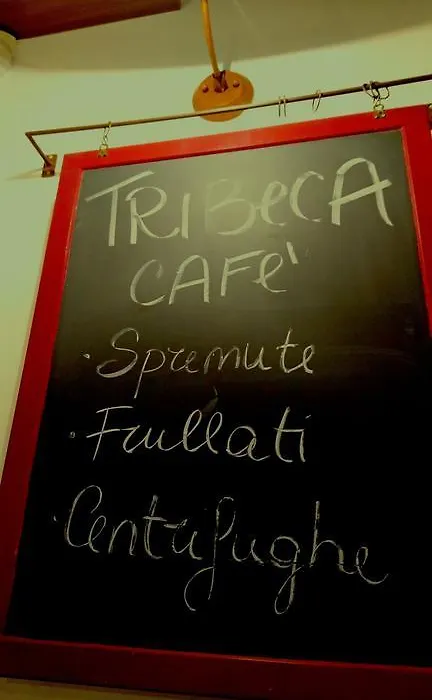 TRIBeCA
CAFe'
· Spremute
· Frullati
· Centrifughe